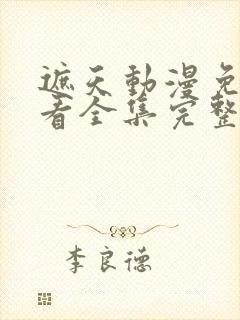 遮天動漫免
看全集完整
李良德